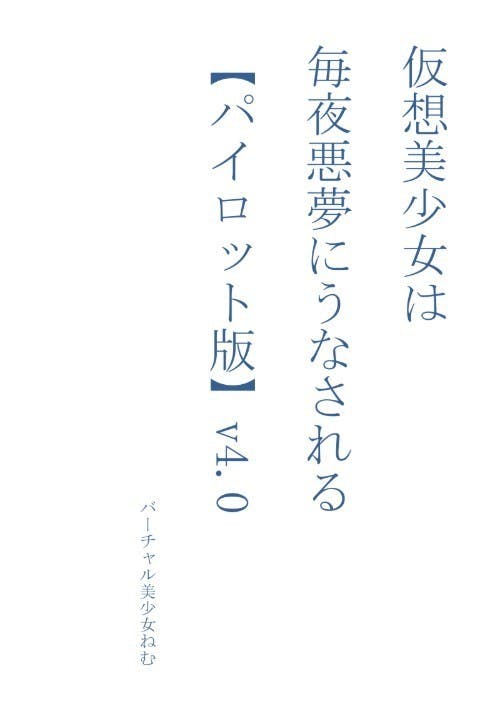 仮想美少女は
毎夜悪夢にうなされる
【パイロット版】v4.0
バーチャル美少女ねむ